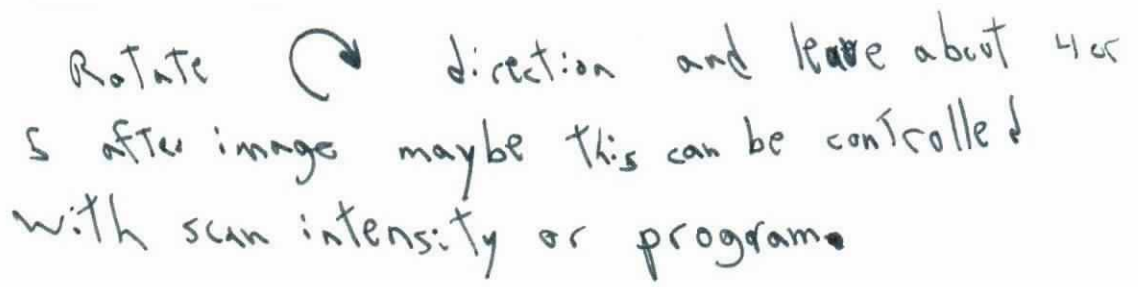 Rotate ↻ direction and leave about 4 or
5 after image maybe this can be controlled
with scan intensity or program.